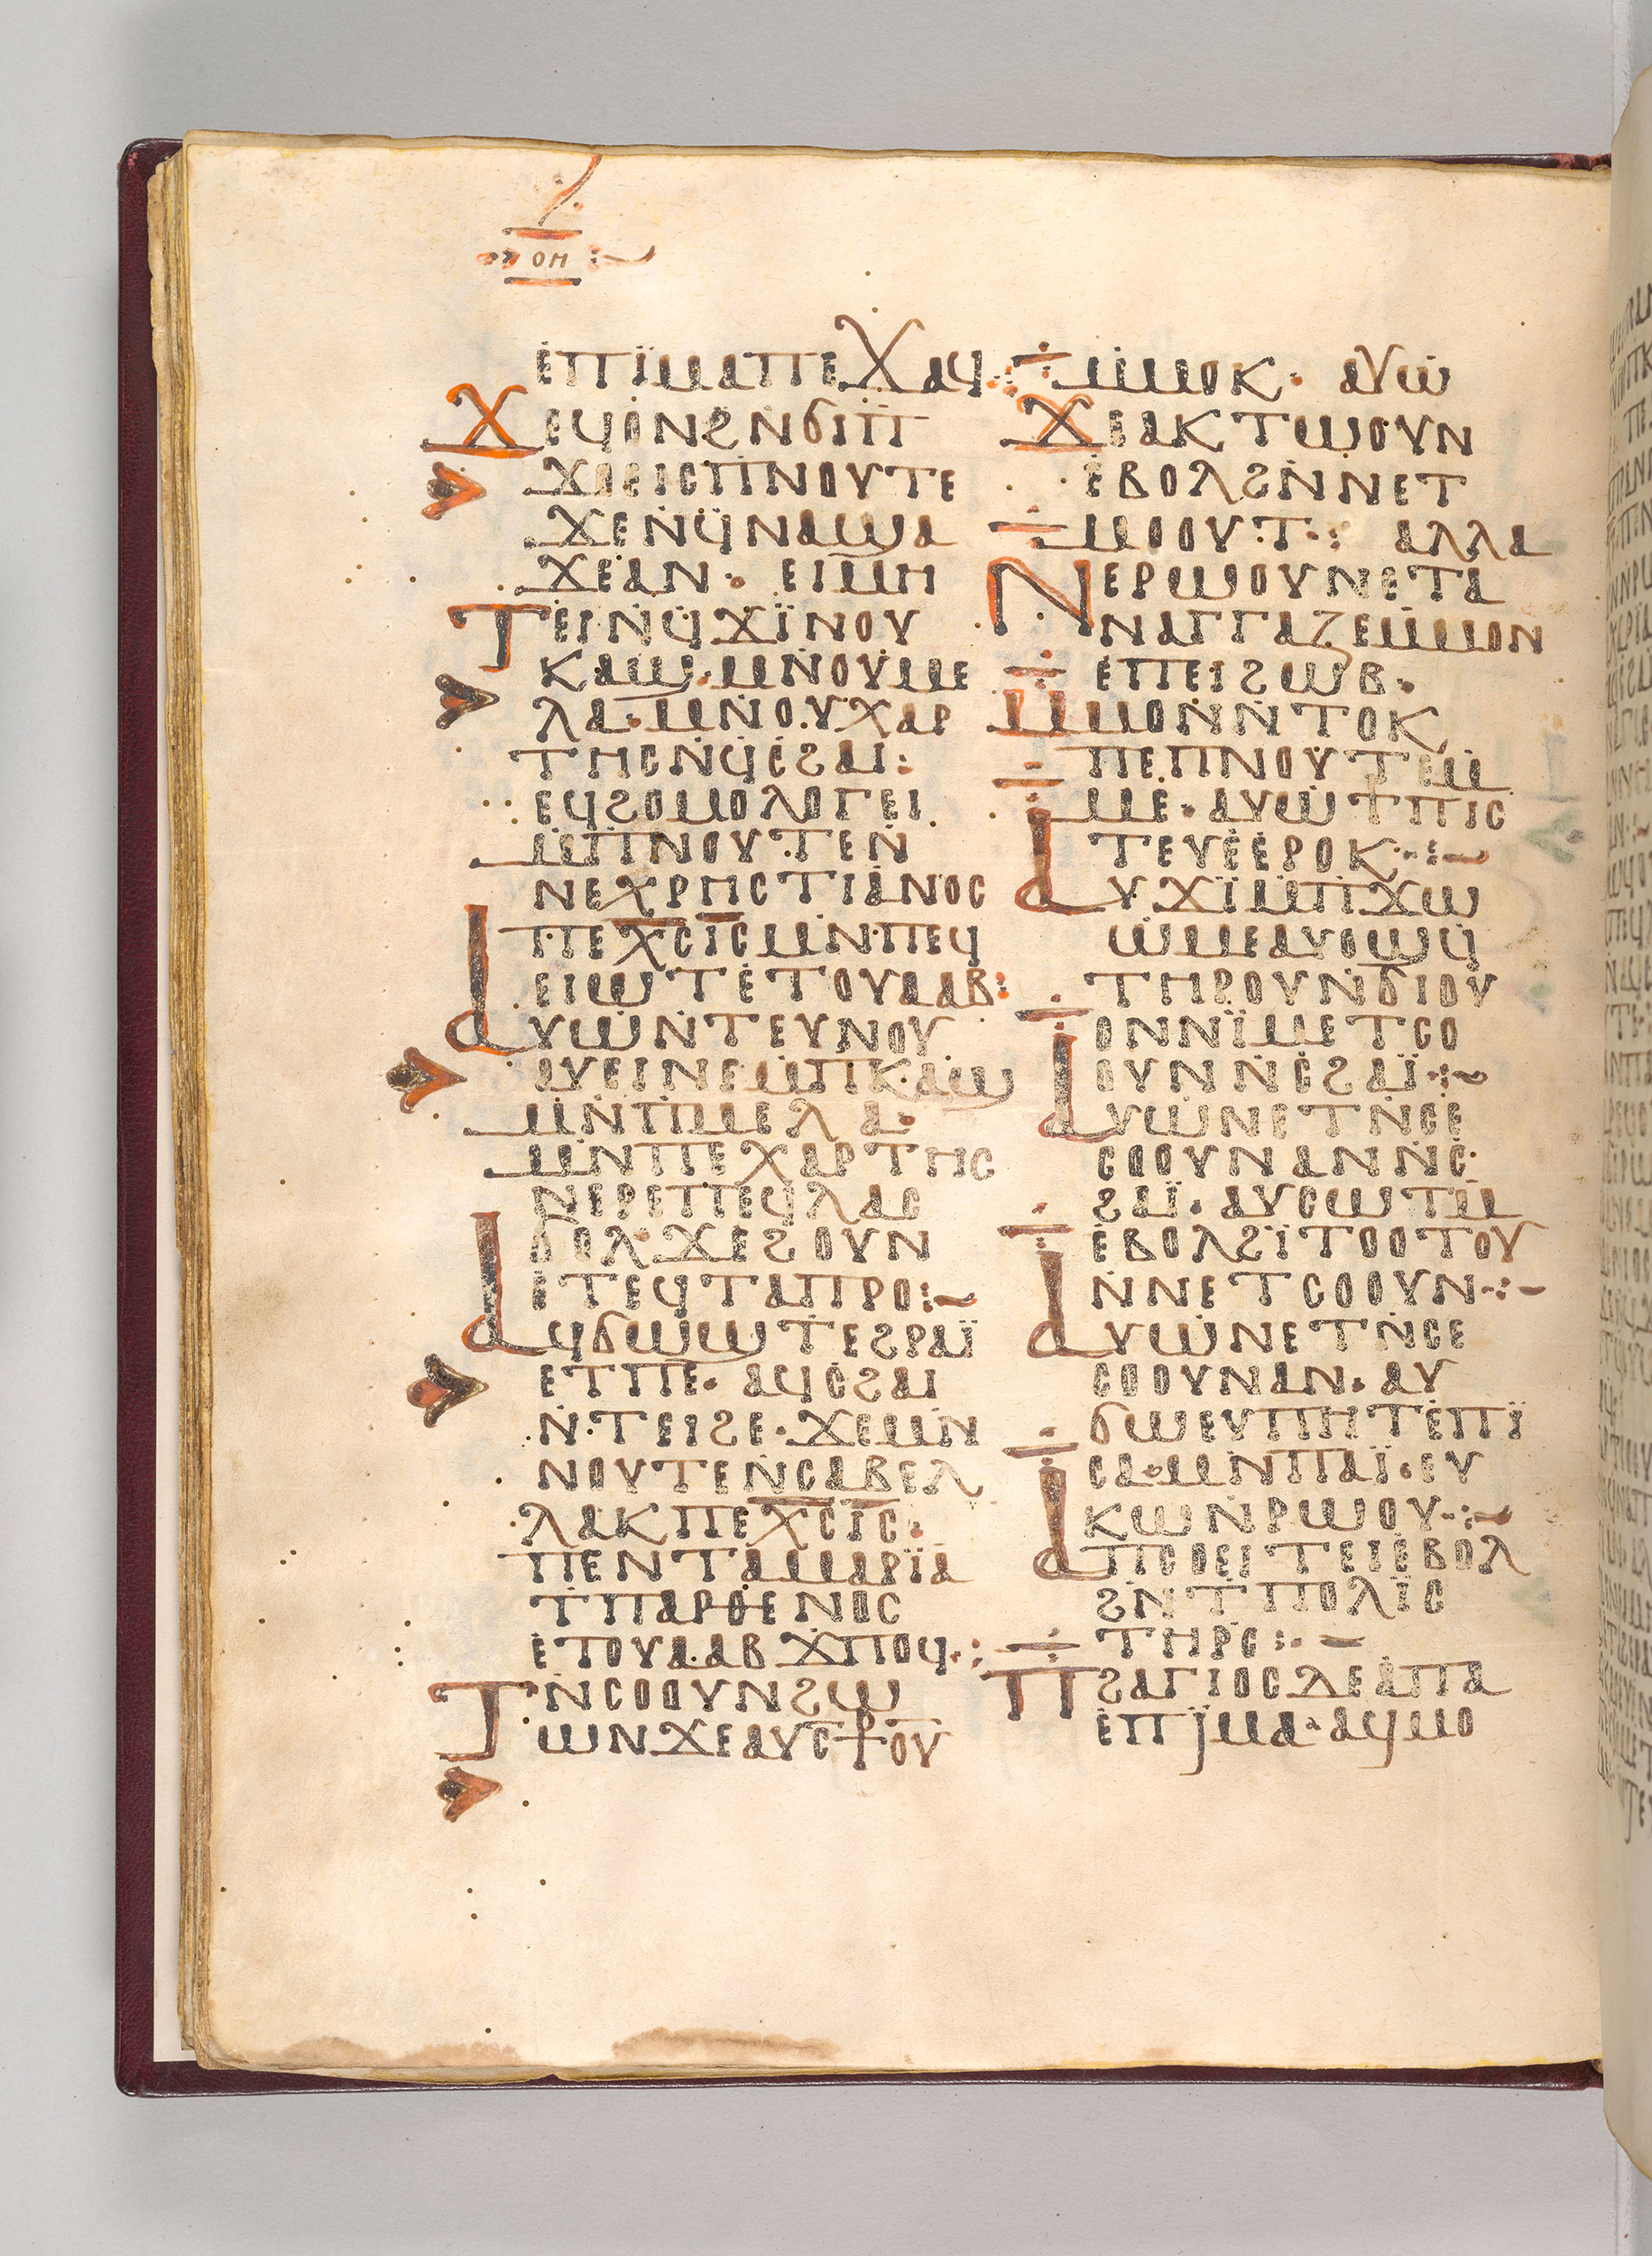 ⲟⲏ
ⲉⲡⲓⲙⲁⲡⲉϫⲁϥ:
ϫⲉϥⲟⲛϩⲛϭⲓⲡ
ϫⲟⲉⲓⲥⲡⲛⲟⲩⲧⲉ
ϫⲉⲛϥⲛⲁϣⲁ
ϫⲉⲁⲛ· ⲉⲓⲙⲏ
ⲧⲉⲓⲛϥϫⲓ̈ⲛⲟⲩ
ⲕⲁϣ·ⲙⲛⲟⲩⲙⲉ
ⲗⲁ·ⲙⲛⲟⲩⲭⲁⲣ
ⲧⲏⲥⲛϥⲥϩⲁⲓ:
ⲉϥϩⲟⲙⲟⲗⲟⲅⲉⲓ
ⲙⲡⲛⲟⲩⲧⲉⲛ
ⲛⲉⲭⲣⲏⲥⲧⲓⲁⲛⲟⲥ
ⲡⲉⲭ̅ⲥ̅ⲓ̅ⲥ̅ⲙⲛⲡⲉϥ
ⲉⲓⲱⲧⲉⲧⲟⲩⲁⲁⲃ:
ⲁⲩⲱⲛⲧⲉⲩⲛⲟⲩ
ⲁⲩⲉⲓⲛⲉⲙⲡⲕⲁϣ
ⲙⲛⲡⲙⲉⲗⲁ·
ⲙⲛⲡⲉⲭⲁⲣⲧⲏⲥ
ⲛⲉⲣⲉⲡⲉϥⲗⲁⲥ
ϭⲟⲗϫⲉϩⲟⲩⲛ
ⲉⲧⲉϥⲧⲁⲡⲣⲟ:~
ⲁϥϭⲱϣⲧⲉϩⲣⲁⲓ̈
ⲉⲧⲡⲉ· ⲁϥⲥϩⲁⲓ
ⲛⲧⲉⲓϩⲉ·ϫⲉⲙⲛ
ⲛⲟⲩⲧⲉⲛⲥⲁⲃⲉⲗ
ⲗⲁⲕⲡⲉⲭ̅ⲥ̅ⲓ̅ⲥ̅·
ⲡⲉⲛⲧⲁⲙⲁⲣⲓ̈ⲁ
ⲧⲡⲁⲣⲑⲉⲛⲟⲥ
ⲉⲧⲟⲩⲁⲁⲃϫⲡⲟϥ·:
ⲧⲛⲥⲟⲟⲩⲛϩⲱ
ⲱⲛϫⲉⲁⲩⲥ⳨ⲟⲩ
ⲙⲙⲟⲕ· ⲁⲩⲱ
ϫⲉⲁⲕⲧⲱⲟⲩⲛ
ⲉⲃⲟⲗϩⲛⲛⲉⲧ
ⲙⲟⲟⲩⲧ·: ⲁⲗⲗⲁ
ⲛⲉⲣⲱⲟⲩⲛⲉⲧⲁ
ⲛⲁⲅⲅⲁⲍⲉⲙⲙⲟⲛ
ⲉⲡⲉⲓϩⲱⲃ·
ⲙⲙⲟⲛⲛⲧⲟⲕ
ⲡⲉⲡⲛⲟⲩⲧⲉⲙ
ⲙⲉ·ⲁⲩⲱⲧⲡⲓⲥ
ⲧⲉⲩⲉⲉⲣⲟⲕ·:~
ⲁⲩϫⲓ̈ⲙⲡϫⲱ
ⲱⲙⲉⲁⲩⲟϣϥ
ⲧⲏⲣⲟⲩⲛϭⲓⲟⲩ
ⲟⲛⲛⲓ̈ⲙⲉⲧⲥⲟ
ⲟⲩⲛⲛⲥϩⲁⲓ̈·:~
ⲁⲩⲱⲛⲉⲧⲛⲥⲉ
ⲥⲟⲟⲩⲛⲁⲛⲛⲥ
ϩⲁⲓ̈·ⲁⲩⲥⲱⲧⲙ
ⲉⲃⲟⲗϩⲓ̈ⲧⲟⲟⲧⲟⲩ
ⲛⲛⲉⲧⲥⲟⲟⲩⲛ·:~
ⲁⲩⲱⲛⲉⲧⲛⲥⲉ
ⲥⲟⲟⲩⲛⲁⲛ·ⲁⲩ
ϭⲱⲉⲩⲡⲏⲧⲉⲡⲓ̈
ⲥⲁ·ⲙⲛⲡⲁⲓ̈·ⲉⲩ
ⲕⲱⲛⲣⲱⲟⲩ·:~
ⲁⲡⲥⲟⲉⲓⲧⲉⲓⲉⲃⲟⲗ
ϩⲛⲧⲡⲟⲗⲓ̈ⲥ
ⲧⲏⲣⲥ:·~
ⲡϩⲁⲅⲓⲟⲥⲇⲉⲁⲡⲁ
ⲉⲡⲓ̈ⲙⲁ·ⲁϥⲙⲟ